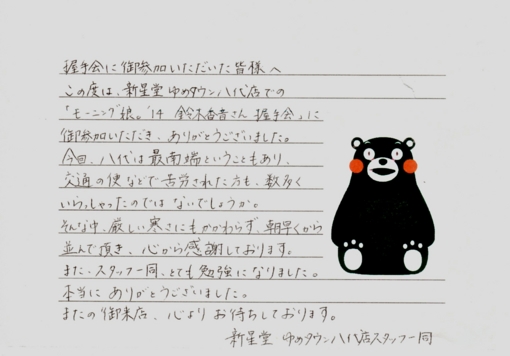 握手会に御参加いただいた皆様へ
この度は、新星堂ゆめタウン八代店での
「モーニング娘。'14 鈴木香音さん握手会」に
御参加いただき、ありがとうございました。
今回、八代は最南端ということもあり、
交通の便などで苦労された方も、数多く
いらっしゃったのではないでしょうか。
そんな中、厳しい寒さにもかかわらず、朝早くから
並んで頂き、心から感謝しております。
また、スタッフ一同、とても勉強になりました。
本当にありがとうございました。
またの御来店、心よりお待ちしております。
新星堂 ゆめタウン八代店スタッフ一同